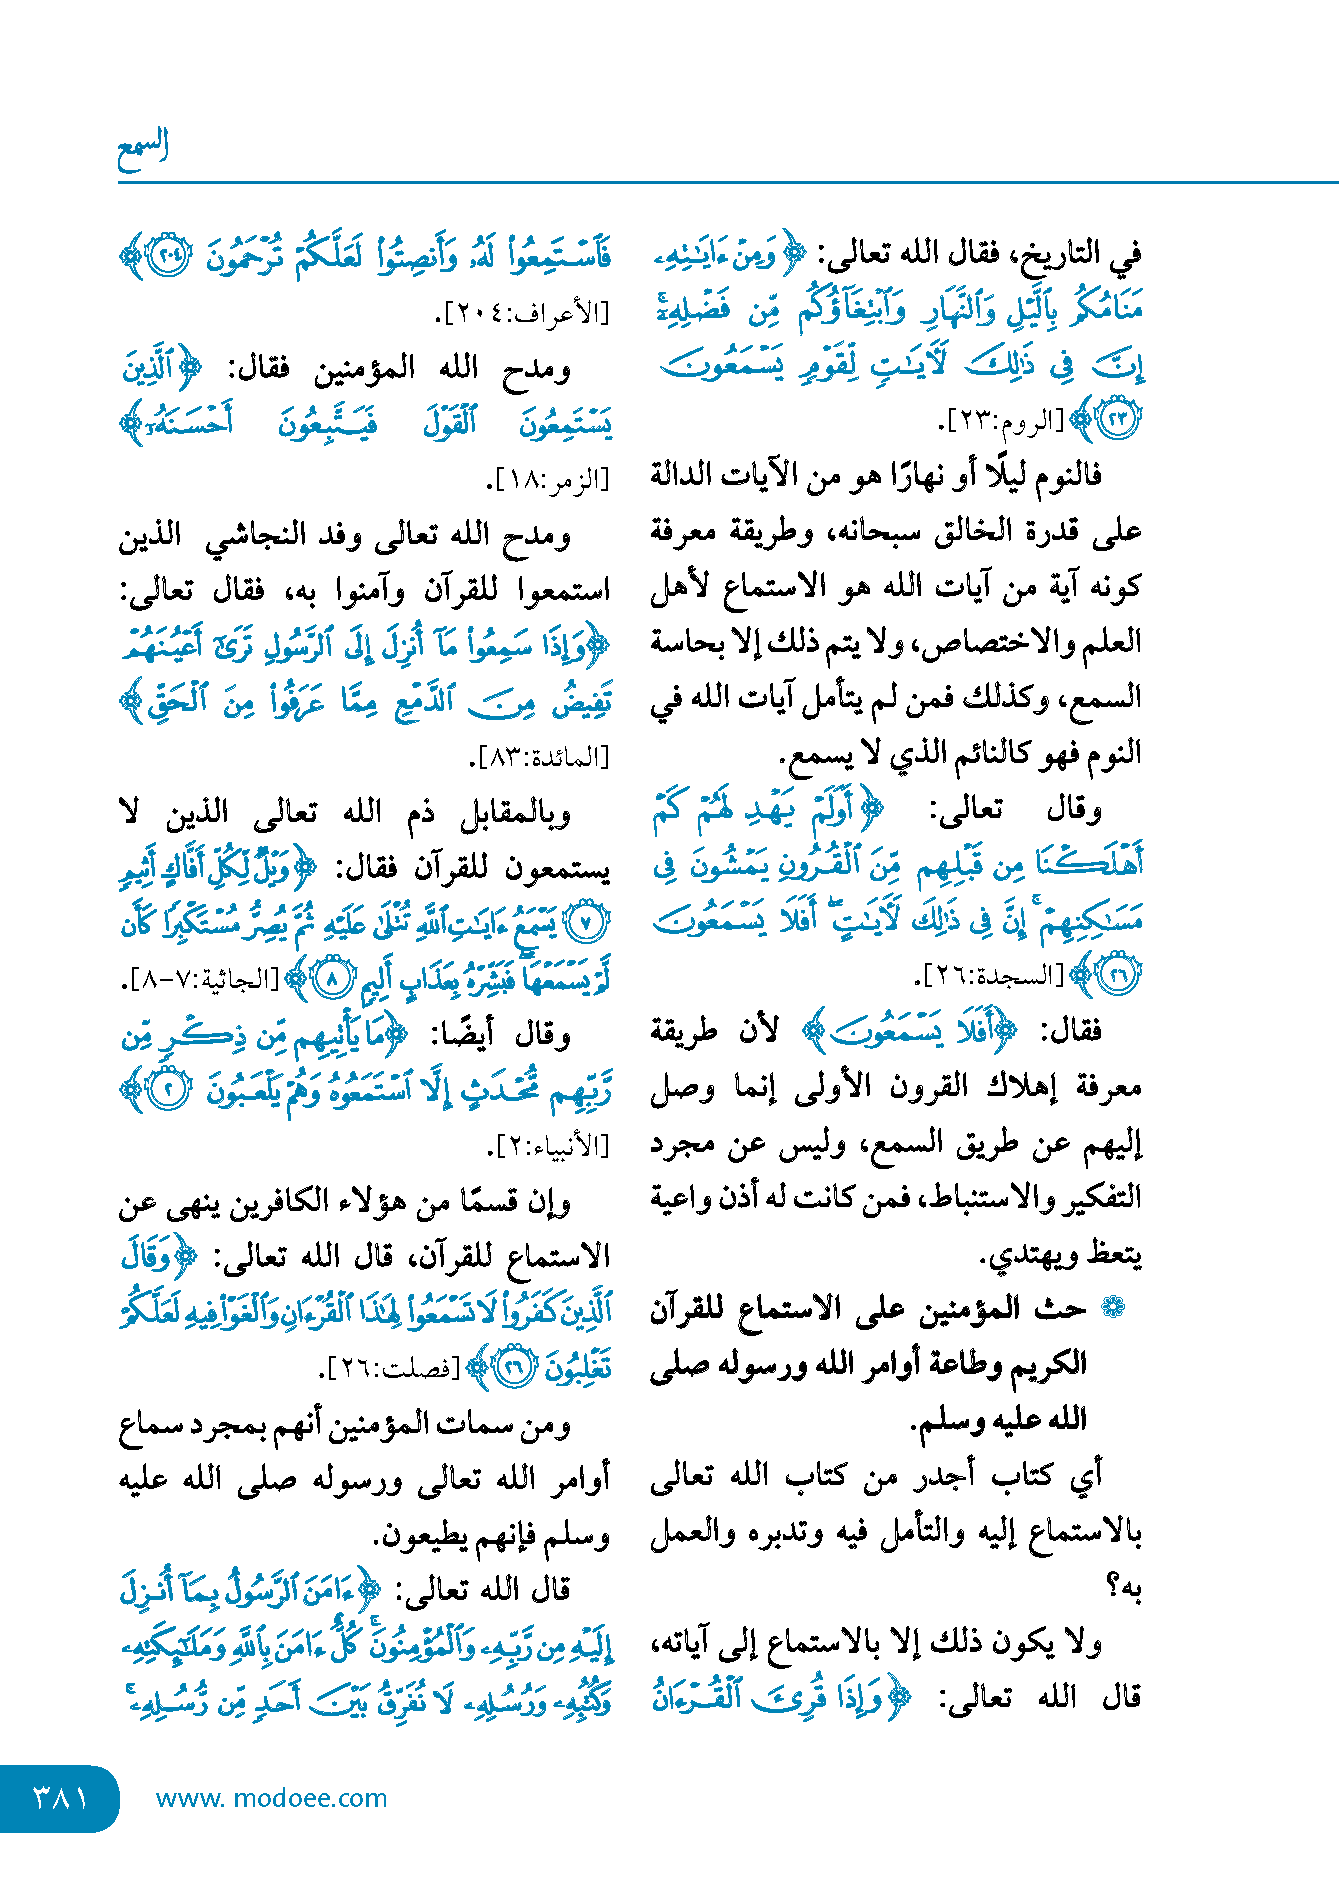 السمع
في التاريخ، فقال الله تعالى: ﴿وَمِنْ ءَايَٰتِهِۦ
مَنَامُكُم بِٱلَّيْلِ وَٱلنَّهَارِ وَٱبْتِغَآؤُكُم مِّن فَضْلِهِۦٓ ۚ
إِنَّ فِى ذَٰلِكَ لَءَايَٰتٍ لِّقَوْمٍ يَسْمَعُونَ
٢٣﴾ [الروم:٢٣].
فالنوم ليلًا أو نهارًا هو من الآيات الدالة
على قدرة الخالق سبحانه، وطريقة معرفة
كونه آية من آيات الله هو الاستماع لأهل
العلم والاختصاص، ولا يتم ذلك إلا بحاسة
السمع، وكذلك فمن لم يتأمل آيات الله في
النوم فهو كالنائم الذي لا يسمع.
وقال تعالى: ﴿أَوَلَمْ يَهْدِ لَهُمْ كَمْ
أَهْلَكْنَا مِن قَبْلِهِم مِّنَ ٱلْقُرُونِ يَمْشُونَ فِى
مَسَٰكِنِهِمْ ۚ إِنَّ فِى ذَٰلِكَ لَءَايَٰتٍ ۖ أَفَلَا يَسْمَعُونَ
٢٦﴾ [السجدة:٢٦].
فقال: ﴿أَفَلَا يَسْمَعُونَ﴾ لأن طريقة
معرفة إهلاك القرون الأولى إنما وصل
إليهم عن طريق السمع، وليس عن مجرد
التفكير والاستنباط، فمن كانت له أذن واعية
يتعظ ويهتدي.
❁ حث المؤمنين على الاستماع للقرآن
الكريم وطاعة أوامر الله ورسوله صلى
الله عليه وسلم.
أي كتاب أجدر من كتاب الله تعالى
بالاستماع إليه والتأمل فيه وتدبره والعمل
به؟
ولا يكون ذلك إلا بالاستماع إلى آياته،
قال الله تعالى: ﴿وَإِذَا قُرِئَ ٱلْقُرْءَانُ
فَٱسْتَمِعُوا۟ لَهُۥ وَأَنصِتُوا۟ لَعَلَّكُمْ تُرْحَمُونَ ٢٠٤﴾
[الأعراف:٢٠٤].
ومدح الله المؤمنين فقال: ﴿ٱلَّذِينَ
يَسْتَمِعُونَ ٱلْقَوْلَ فَيَتَّبِعُونَ أَحْسَنَهُۥٓ﴾
[الزمر:١٨].
ومدح الله تعالى وفد النجاشي الذين
استمعوا للقرآن وآمنوا به، فقال تعالى:
﴿وَإِذَا سَمِعُوا۟ مَآ أُنزِلَ إِلَى ٱلرَّسُولِ تَرَىٰٓ أَعْيُنَهُمْ
تَفِيضُ مِنَ ٱلدَّمْعِ مِمَّا عَرَفُوا۟ مِنَ ٱلْحَقِّ﴾
[المائدة:٨٣].
وبالمقابل ذم الله تعالى الذين لا
يستمعون للقرآن فقال: ﴿وَيْلٌ لِّكُلِّ أَفَّاكٍ أَثِيمٍ
٧ يَسْمَعُ ءَايَٰتِ ٱللَّهِ تُتْلَىٰ عَلَيْهِ ثُمَّ يُصِرُّ مُسْتَكْبِرًا كَأَن
لَّمْ يَسْمَعْهَا ۖ فَبَشِّرْهُ بِعَذَابٍ أَلِيمٍ ٨﴾ [الجاثية:٧-٨].
وقال أيضًا: ﴿مَا يَأْتِيهِم مِّن ذِكْرٍ مِّن
رَّبِّهِم مُّحْدَثٍ إِلَّا ٱسْتَمَعُوهُ وَهُمْ يَلْعَبُونَ ٢﴾
[الأنبياء:٢].
وإن قسمًا من هؤلاء الكافرين ينهى عن
الاستماع للقرآن، قال الله تعالى: ﴿وَقَالَ
ٱلَّذِينَ كَفَرُوا۟ لَا تَسْمَعُوا۟ لِهَٰذَا ٱلْقُرْءَانِ وَٱلْغَوْا۟ فِيهِ لَعَلَّكُمْ
تَغْلِبُونَ ٢٦﴾ [فصلت:٢٦].
ومن سمات المؤمنين أنهم بمجرد سماع
أوامر الله تعالى ورسوله صلى الله عليه
وسلم فإنهم يطيعون.
قال الله تعالى: ﴿ءَامَنَ ٱلرَّسُولُ بِمَآ أُنزِلَ
إِلَيْهِ مِن رَّبِّهِۦ وَٱلْمُؤْمِنُونَ ۚ كُلٌّ ءَامَنَ بِٱللَّهِ وَمَلَٰٓئِكَتِهِۦ
وَكُتُبِهِۦ وَرُسُلِهِۦ لَا نُفَرِّقُ بَيْنَ أَحَدٍ مِّن رُّسُلِهِۦ ۚ
www. modoee.com
٣٨١